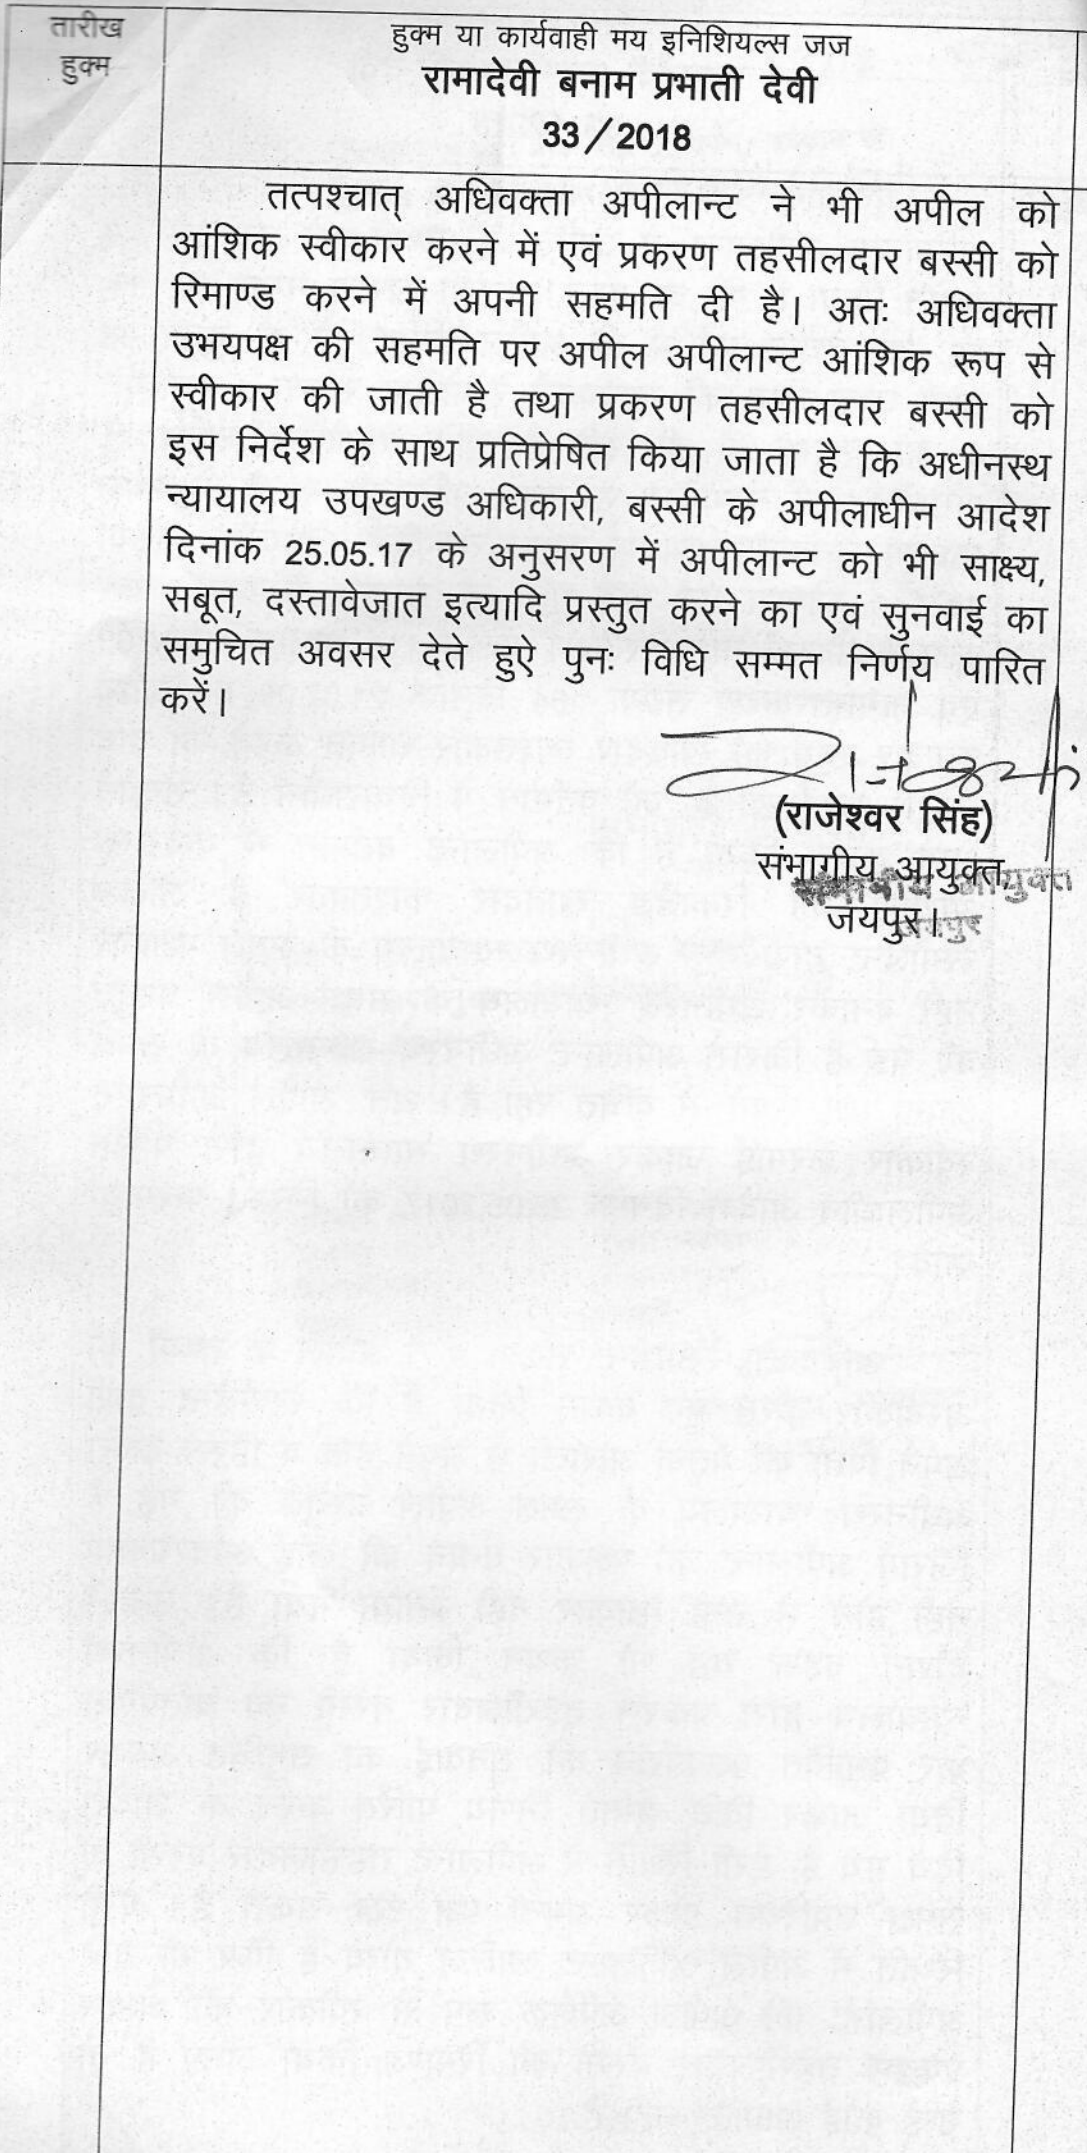 तारीख
हुक्म
हुक्म या कार्यवाही मय इनिशियल्स जज
रामादेवी बनाम प्रभाती देवी
33/2018
तत्पश्चात् अधिवक्ता अपीलान्ट ने भी अपील को
आंशिक स्वीकार करने में एवं प्रकरण तहसीलदार बस्सी को
रिमाण्ड करने में अपनी सहमति दी है। अतः अधिवक्ता
उभयपक्ष की सहमति पर अपील अपीलान्ट आंशिक रूप से
स्वीकार की जाती है तथा प्रकरण तहसीलदार बस्सी को
इस निर्देश के साथ प्रतिप्रेषित किया जाता है कि अधीनस्थ
न्यायालय उपखण्ड अधिकारी, बस्सी के अपीलाधीन आदेश
दिनांक 25.05.17 के अनुसरण में अपीलान्ट को भी साक्ष्य,
सबूत, दस्तावेजात इत्यादि प्रस्तुत करने का एवं सुनवाई का
समुचित अवसर देते हुऐ पुनः विधि सम्मत निर्णय पारित
करें।
(राजेश्वर सिंह)
संभागीय आयुक्त,
संभागीय आयुक्त
जयपुर।
जयपुर